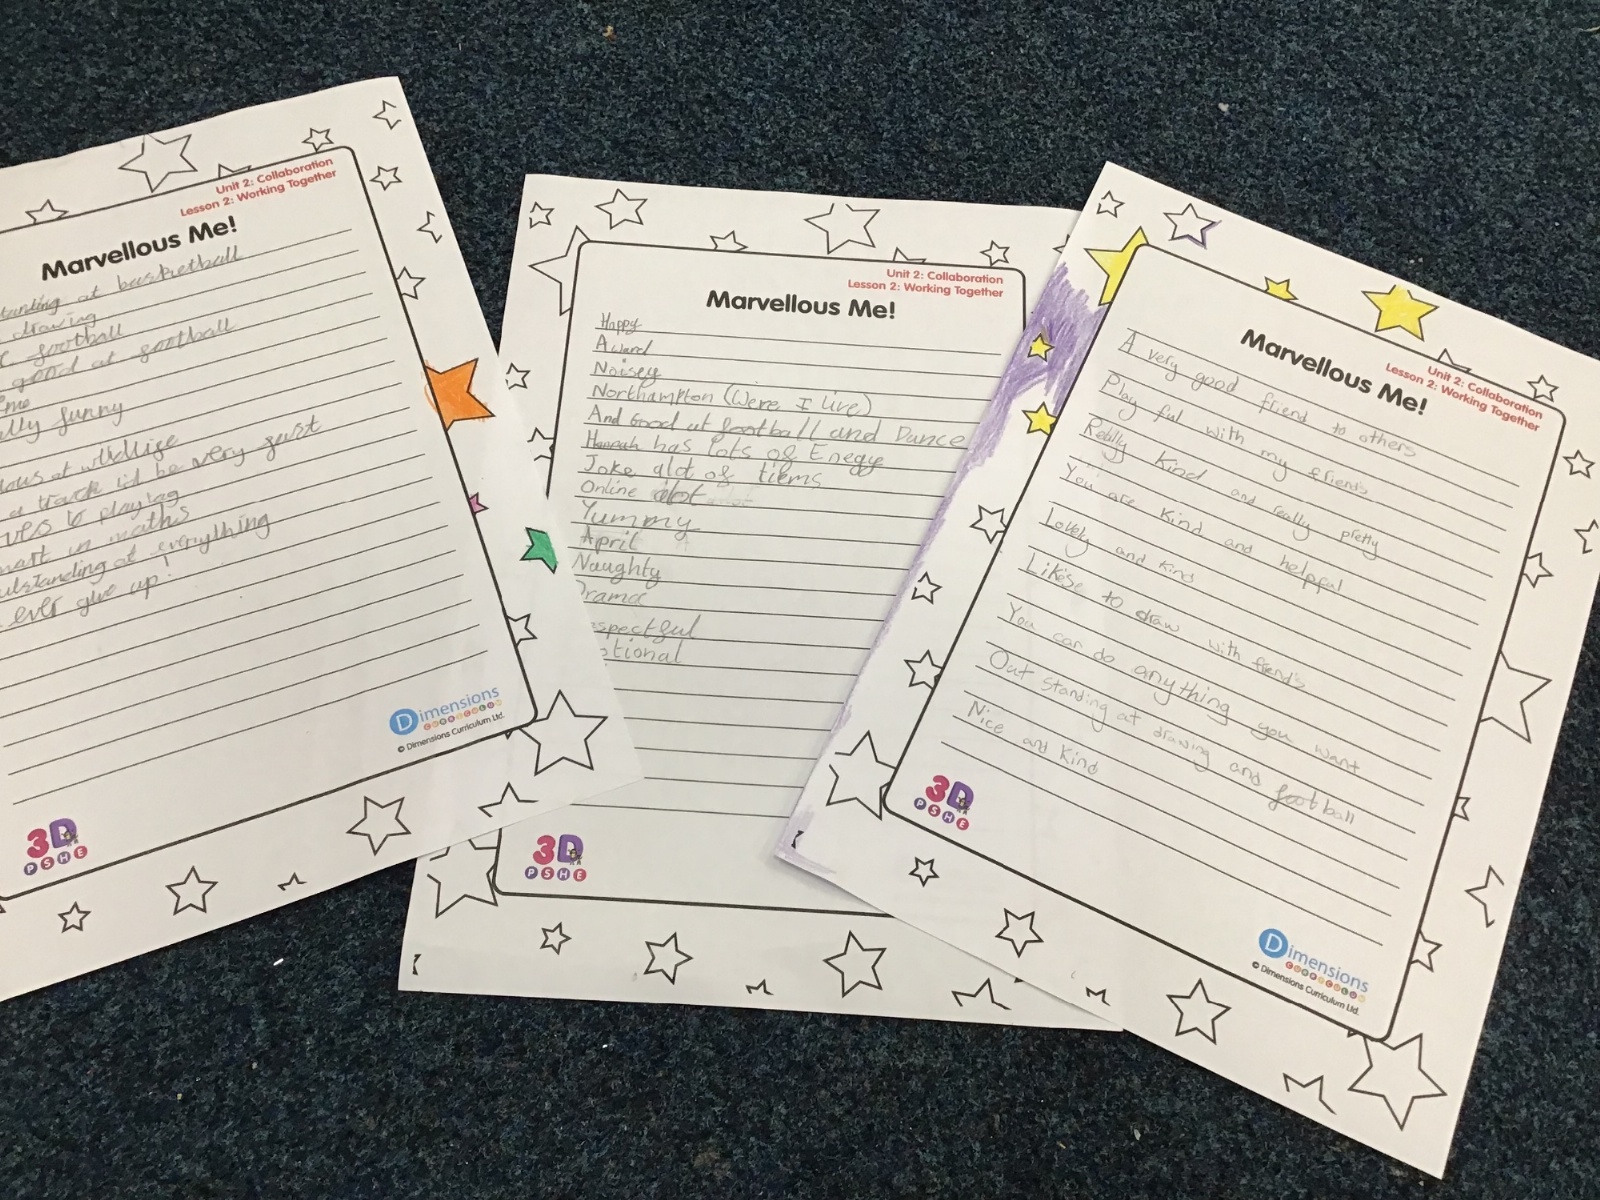 Unit 2: Collaboration
Lesson 2: Working Together
Marvellous Me!
at basketball
drawing
football
good at football
me
funny
at
at track i'd be very
to playing
in maths
at everything
ever give up!
Dimensions
CURRICULUM
© Dimensions Curriculum Ltd.
3D
PSHE
Unit 2: Collaboration
Lesson 2: Working Together
Marvellous Me!
Happy
Award
Noisey
Northampton (Were I live)
And Good at football and Dance
Hannah has lots of Enegy
Joke alot of tiems
Online alot
Yummy
April
Naughty
rama
spectful
otional
3D
PSHE
Unit 2: Collaboration
Lesson 2: Working Together
Marvellous Me!
A very good friend to others
Play ful with my friends
Really Kind and really pretty
You are kind and helpful
Lovely and kind
Likese to draw with friends
You can do anything you want
Out standing at drawing and football
Nice and Kind
3D
PSHE
Dimensions
CURRICULUM
© Dimensions Curriculum Ltd.